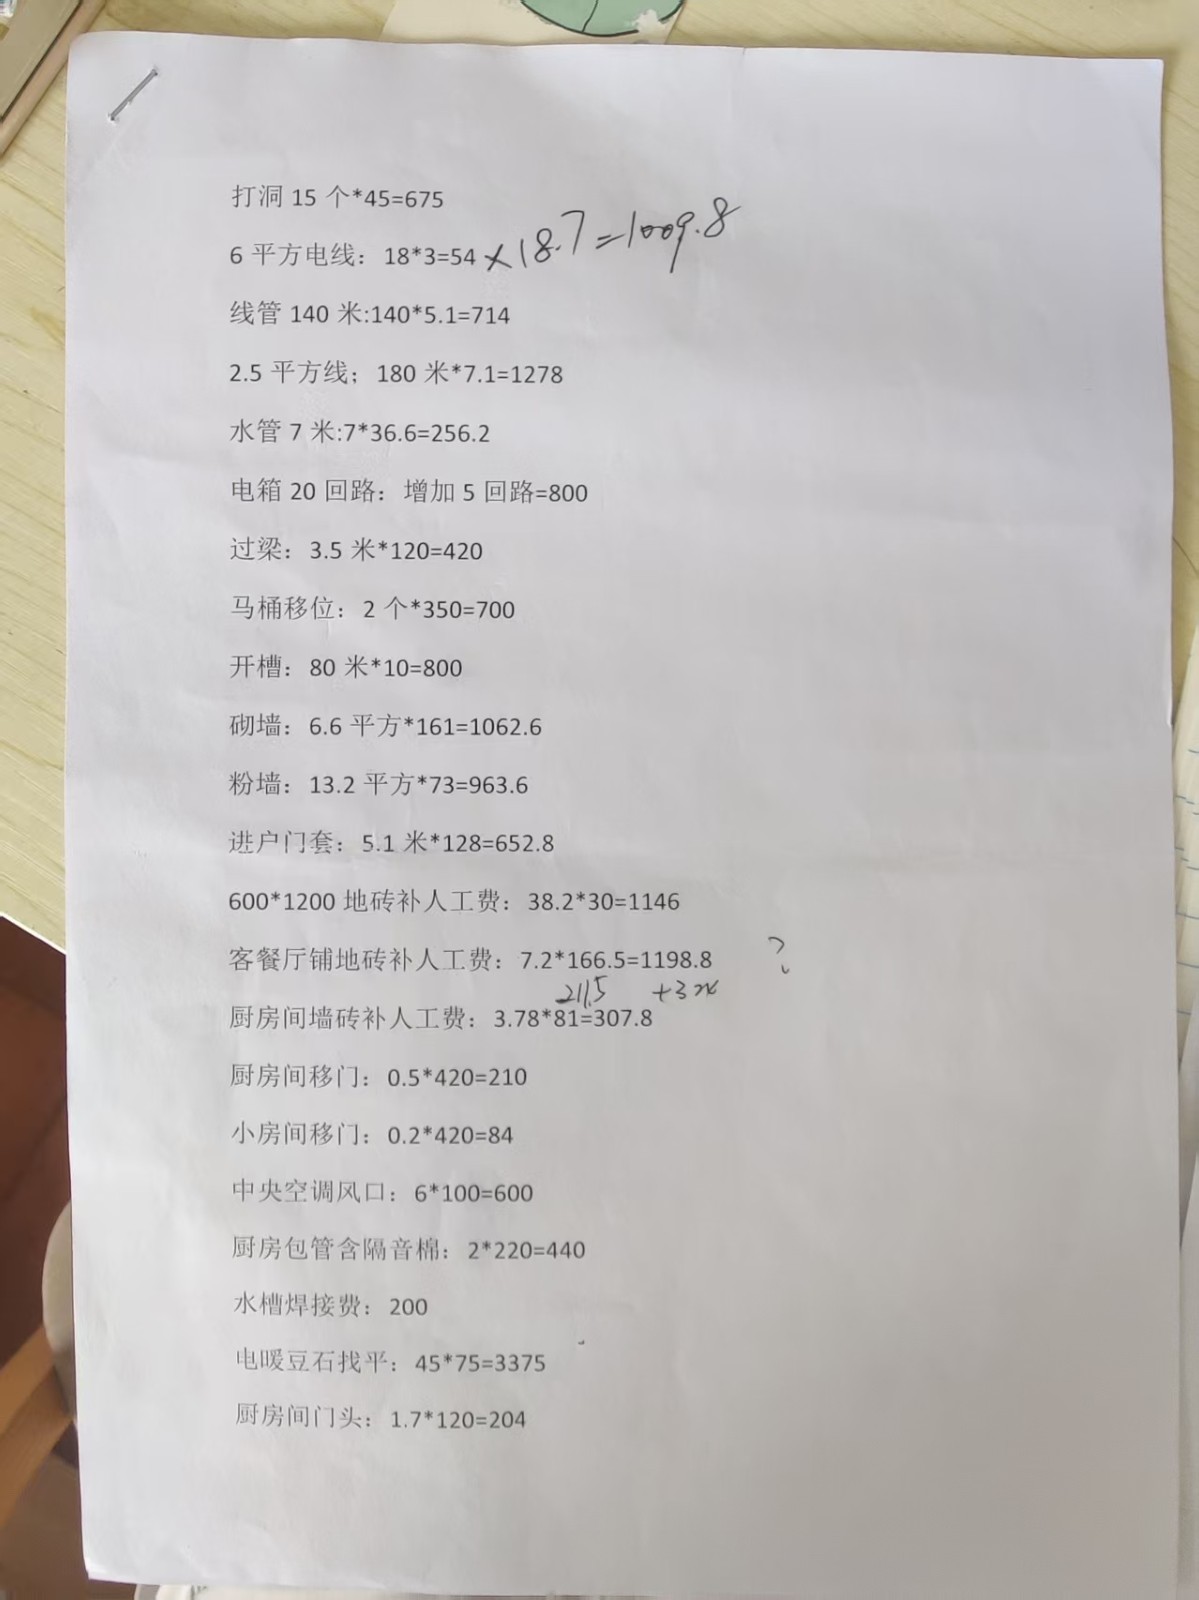 打洞 15 个*45=675
6 平方电线：18*3=54 ×18.7=1009.8
线管 140 米:140*5.1=714
2.5 平方线；180 米*7.1=1278
水管 7 米:7*36.6=256.2
电箱 20 回路：增加 5 回路=800
过梁：3.5 米*120=420
马桶移位：2 个*350=700
开槽：80 米*10=800
砌墙：6.6 平方*161=1062.6
粉墙：13.2 平方*73=963.6
进户门套：5.1 米*128=652.8
600*1200 地砖补人工费：38.2*30=1146
客餐厅铺地砖补人工费：7.2*166.5=1198.8 ?
211.5
厨房间墙砖补人工费：3.78*81=307.8
厨房间移门：0.5*420=210
小房间移门：0.2*420=84
中央空调风口：6*100=600
厨房包管含隔音棉：2*220=440
水槽焊接费：200
电暖豆石找平：45*75=3375
厨房间门头：1.7*120=204